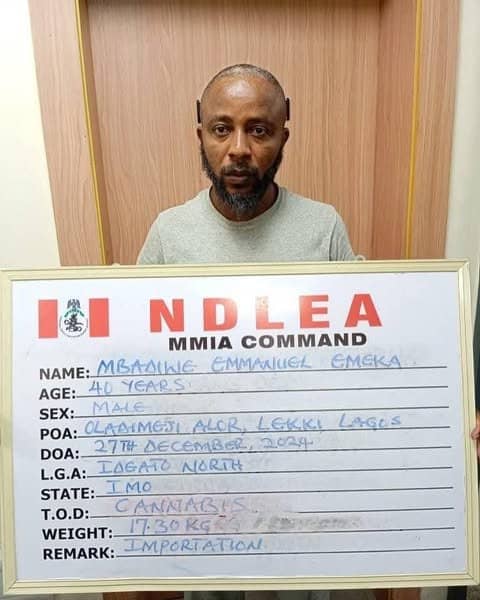 NDLEA
MMIA COMMAND
NAME: MBADIWE EMMANUEL EMEKA
AGE: 40 YEARS
SEX: MALE
POA: OLADIMEJI ALOR, LEKKI LAGOS
DOA: 27TH DECEMBER, 2024
L.G.A: IDEATO NORTH
STATE: IMO
T.O.D: CANNABIS
WEIGHT: 17.30KG
REMARK: IMPORTATION